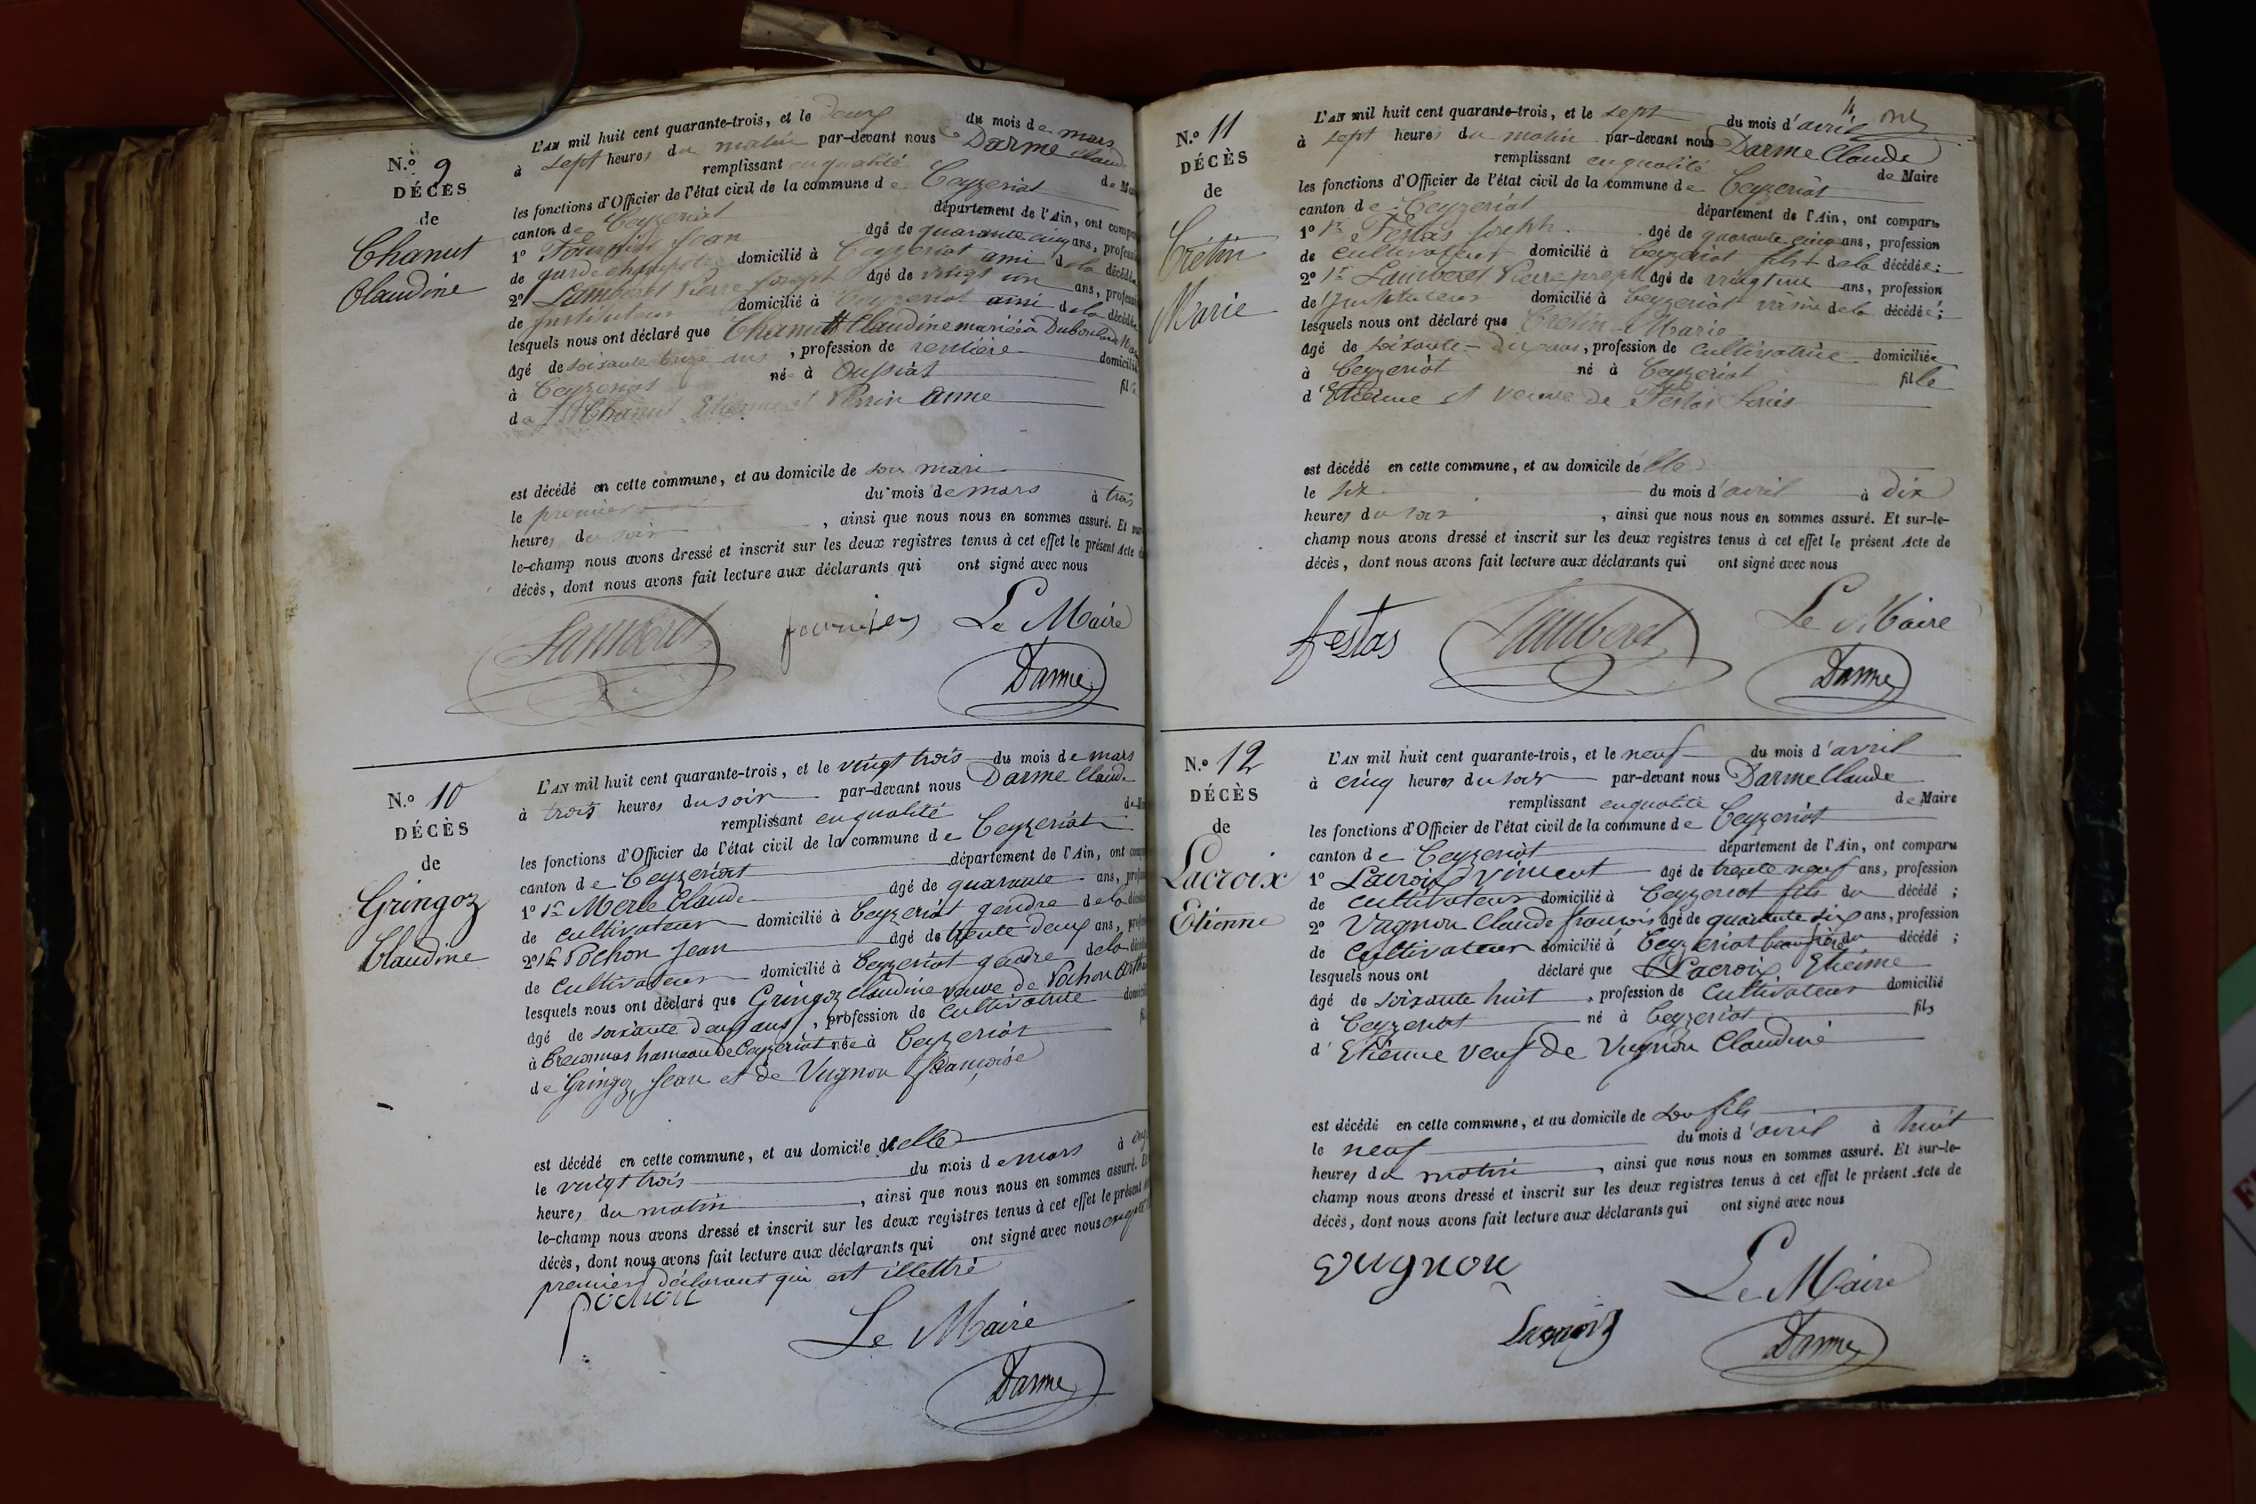 N.o 9
DÉCÈS
de
Chanut
Claudine
L'AN mil huit cent quarante-trois, et le deux du mois de mars
à sept heures du matin par-devant nous Darme Claude
remplissant en qualité de Maire
les fonctions d'Officier de l'état civil de la commune de Ceyzeriat
canton de Ceyzeriat département de l'Ain, ont compa
1o Jean âgé de quarante cinq ans, profession
de garde champêtre domicilié à Ceyzeriat ami de la décédée
2o Lamberet Pierre Joseph âgé de vingt un ans, profession
de Instituteur domicilié à Ceyzeriat ami de la décédée
lesquels nous ont déclaré que Chanut Claudine mariée à
âgé de soixante ans, profession de rentière domicilié
à Ceyzeriat née à Oussiat fille
de Chanut Etienne et Perrin Anne
est décédé en cette commune, et au domicile de son mari
le premier du mois de mars à trois
heures du soir, ainsi que nous nous en sommes assuré. Et sur
le-champ nous avons dressé et inscrit sur les deux registres tenus à cet effet le présent Acte de
décès, dont nous avons fait lecture aux déclarants qui ont signé avec nous
Lamberet fournier Le Maire
Darme
N.o 10
DÉCÈS
de
Gringoz
Claudine
L'AN mil huit cent quarante-trois, et le vingt trois du mois de mars
à trois heures du soir par-devant nous Darme Claude
remplissant en qualité de Maire
les fonctions d'Officier de l'état civil de la commune de Ceyzeriat
canton de Ceyzeriat département de l'Ain, ont comparu
1o Sr Merle Claude âgé de quarante ans, profession
de cultivateur domicilié à Ceyzeriat gendre de la décédée
2o Sr Pochon Jean âgé de trente deux ans, profession
de cultivateur domicilié à Ceyzeriat gendre de la décédée
lesquels nous ont déclaré que Gringoz Claudine veuve de Pochon
âgé de soixante deux ans, profession de cultivatrice domicilié
à hameau de Ceyzeriat née à Ceyzeriat fille
de Gringoz Jean et de Vugnon Françoise
est décédé en cette commune, et au domicile d'elle
le vingt trois du mois de mars à
heures du matin, ainsi que nous nous en sommes assuré. Et
le-champ nous avons dressé et inscrit sur les deux registres tenus à cet effet le présent
décès, dont nous avons fait lecture aux déclarants qui ont signé avec nous
premier déclarant qui est illettré
pochon
Le Maire
Darme
N.o 11
DÉCÈS
de
Crétin
Marie
L'AN mil huit cent quarante-trois, et le sept du mois d'avril
à sept heures du matin par-devant nous Darme Claude
remplissant en qualité de Maire
les fonctions d'Officier de l'état civil de la commune de Ceyzeriat
canton de Ceyzeriat département de l'Ain, ont comparu
1o Sr Festas Joseph âgé de quarante cinq ans, profession
de cultivateur domicilié à Ceyzeriat fils de la décédée;
2o Sr Lamberet Pierre Joseph âgé de vingt un ans, profession
de Instituteur domicilié à Ceyzeriat voisin de la décédée;
lesquels nous ont déclaré que Cretin Marie
âgé de soixante-dix ans, profession de cultivatrice domiciliée
à Ceyzeriat né à Ceyzeriat fille
d'Etienne et veuve de Festas Louis
est décédé en cette commune, et au domicile d'elle
le six du mois d'avril à dix
heures du soir, ainsi que nous nous en sommes assuré. Et sur-le-
champ nous avons dressé et inscrit sur les deux registres tenus à cet effet le présent Acte de
décès, dont nous avons fait lecture aux déclarants qui ont signé avec nous
festas Lamberet Le Maire
Darme
N.o 12
DÉCÈS
de
Lacroix
Etienne
L'AN mil huit cent quarante-trois, et le neuf du mois d'avril
à cinq heures du soir par-devant nous Darme Claude
remplissant en qualité de Maire
les fonctions d'Officier de l'état civil de la commune de Ceyzeriat
canton de Ceyzeriat département de l'Ain, ont comparu
1o Lacroix Vincent âgé de trente neuf ans, profession
de cultivateur domicilié à Ceyzeriat fils du décédé;
2o Vugnon Claude françois âgé de quarante six ans, profession
de cultivateur domicilié à Ceyzeriat beau frère du décédé;
lesquels nous ont déclaré que Lacroix Etienne
âgé de soixante huit, profession de cultivateur domicilié
à Ceyzeriat né à Ceyzeriat fils
d'Etienne veuf de Vugnon Claudine
est décédé en cette commune, et au domicile de son fils
le neuf du mois d'avril à huit
heures du matin, ainsi que nous nous en sommes assuré. Et sur-le-
champ nous avons dressé et inscrit sur les deux registres tenus à cet effet le présent Acte de
décès, dont nous avons fait lecture aux déclarants qui ont signé avec nous
Vugnon Le Maire
Lacroix
Darme